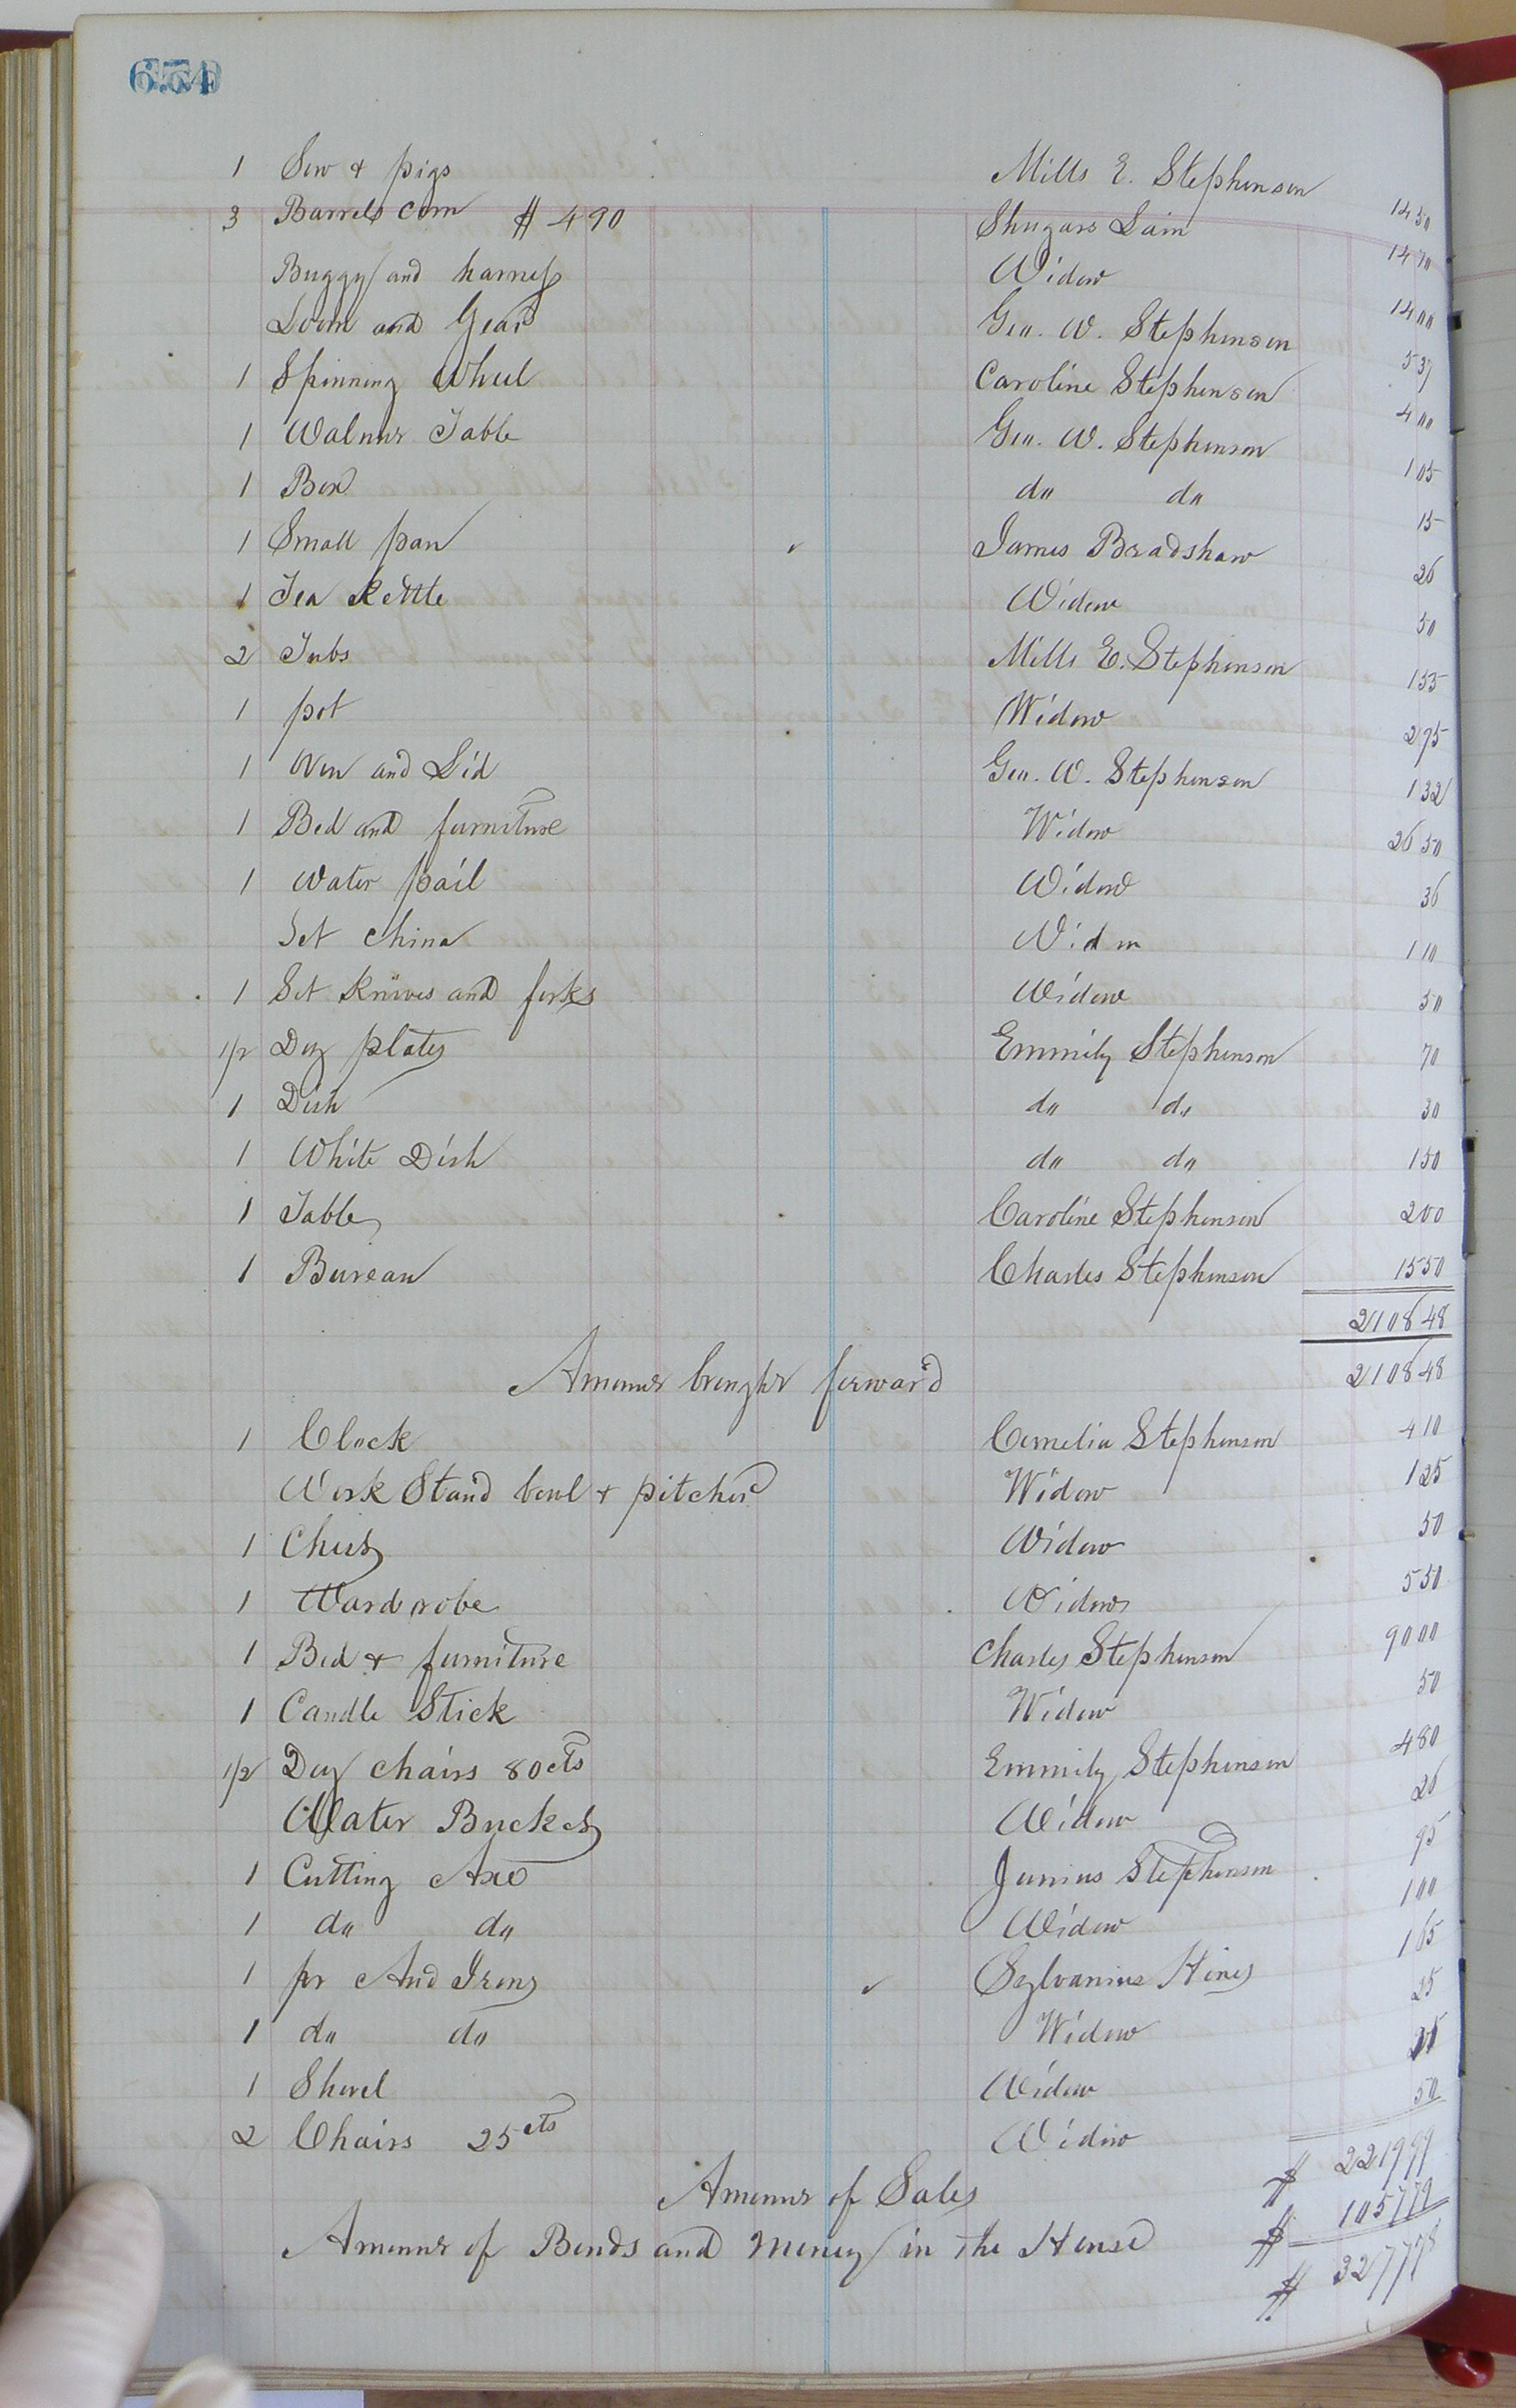 1 Sow & pigs Mills E. Stephenson 14 50
3 Barrels Corn $4 90 Shugars Lain 14 70
Buggy and harness Widow 14 00
Loom and Gear Geo. W. Stephenson 5 37
1 Spinning Wheel Caroline Stephenson 4 00
1 Walnut Table Geo. W. Stephenson 1 05
1 Box do do 15
1 Small pan James Bradshaw 26
1 Tea Kettle Widow 50
2 Tubs Mills E. Stephenson 1 55
1 pot Widow 2 95
1 Oven and Lid Geo. W. Stephenson 1 32
1 Bed and furniture Widow 26 50
1 Water pail Widow 36
Set China Widow 1 10
1 Set Knives and forks Widow 50
1/2 Doz plates Emmily Stephenson 70
1 Dish do do 30
1 White Dish do do 1 50
1 Table Caroline Stephenson 2 00
1 Bureau Charles Stephenson 15 50
2108 48
Amount brought forward 2108 48
1 Clock Cornelia Stephenson 4 10
Work Stand bowl & pitcher Widow 1 25
1 Chest Widow 50
1 Wardrobe Widow 5 50
1 Bed & furniture Charles Stephenson 90 00
1 Candle Stick Widow 50
1/2 Doz chairs 80cts Emmily Stephenson 4 80
Water Bucket Widow 26
1 Cutting Axe Junius Stephenson 95
1 do do Widow 1 00
1 pr And Irons Sylvanius Hines 1 65
1 do do Widow 25
1 Shovel Widow
2 Chairs 25cts Widow 50
Amount of Sales $ 2219 99
Amount of Bonds and Money in the House $ 1057 79
$ 3277 78